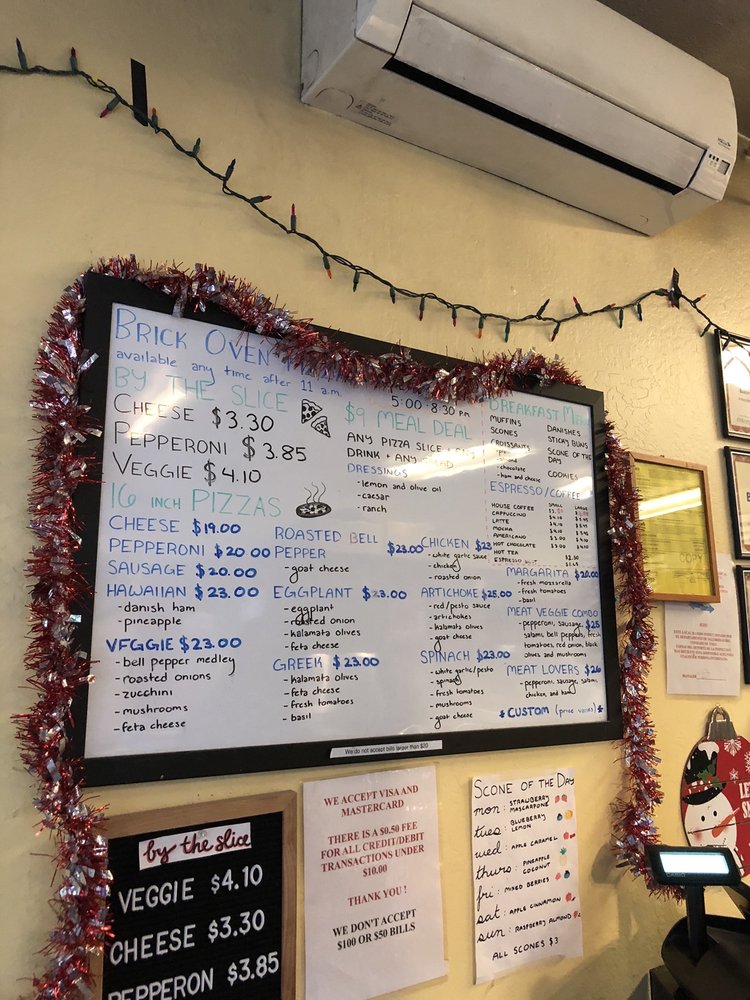 BRICK OVEN
available any time after 11 a.m.
BY THE SLICE
CHEESE $3.30
PEPPERONI $3.85
VEGGIE $4.10
16 INCH PIZZAS
CHEESE $19.00
PEPPERONI $20.00
SAUSAGE $20.00
HAWAIIAN $23.00
-danish ham
-pineapple
VEGGIE $23.00
-bell pepper medley
-roasted onions
-zucchini
-mushrooms
-feta cheese
5:00-8:30 PM
$9 MEAL DEAL
ANY PIZZA SLICE +
DRINK + ANY
DRESSINGS
-lemon and olive oil
-caesar
-ranch
ROASTED BELL
PEPPER $23.00
-goat cheese
EGGPLANT $23.00
-eggplant
-roasted onion
-kalamata olives
-feta cheese
GREEK $23.00
-kalamata olives
-feta cheese
-fresh tomatoes
-basil
CHICKEN $23
-white garlic sauce
-chicken
-roasted onion
ARTICHOKE $25
-red/pesto sauce
-artichokes
-kalamata olives
-goat cheese
SPINACH $23.00
-white garlic/pesto
-spinach
-fresh tomatoes
-mushrooms
-goat cheese
BREAKFAST MENU
MUFFINS
SCONES
CROISSANTS
-chocolate
-ham and cheese
DANISHES
STICKY BUNS
SCONE OF THE
DAY
COOKIES
ESPRESSO/COFFEE
SMALL LARGE
HOUSE COFFEE
CAPPUCCINO
LATTE
MOCHA
AMERICANO
HOT CHOCOLATE
HOT TEA
ESPRESSO
MARGARITA $20.00
-fresh mozzarella
-fresh tomatoes
-basil
MEAT VEGGIE COMBO
-pepperoni, sausage, $25
salami, bell peppers, fresh
tomatoes, red onion, black
olives and mushrooms
MEAT LOVERS $26
-pepperoni, sausage, salami,
chicken, and ham
*CUSTOM (price varies)*
We do not accept bills larger than $20
by the slice
VEGGIE $4.10
CHEESE $3.30
PEPPERON $3.85
WE ACCEPT VISA AND
MASTERCARD
THERE IS A $0.50 FEE
FOR ALL CREDIT/DEBIT
TRANSACTIONS UNDER
$10.00
THANK YOU!
WE DON'T ACCEPT
$100 OR $50 BILLS
SCONE OF THE DAY
mon: STRAWBERRY
MASCARPONE
tues: BLUEBERRY
LEMON
wed: APPLE CARAMEL
thurs: PINEAPPLE
COCONUT
fri: MIXED BERRIES
sat: APPLE CINNAMON
sun: RASPBERRY ALMOND
ALL SCONES $3